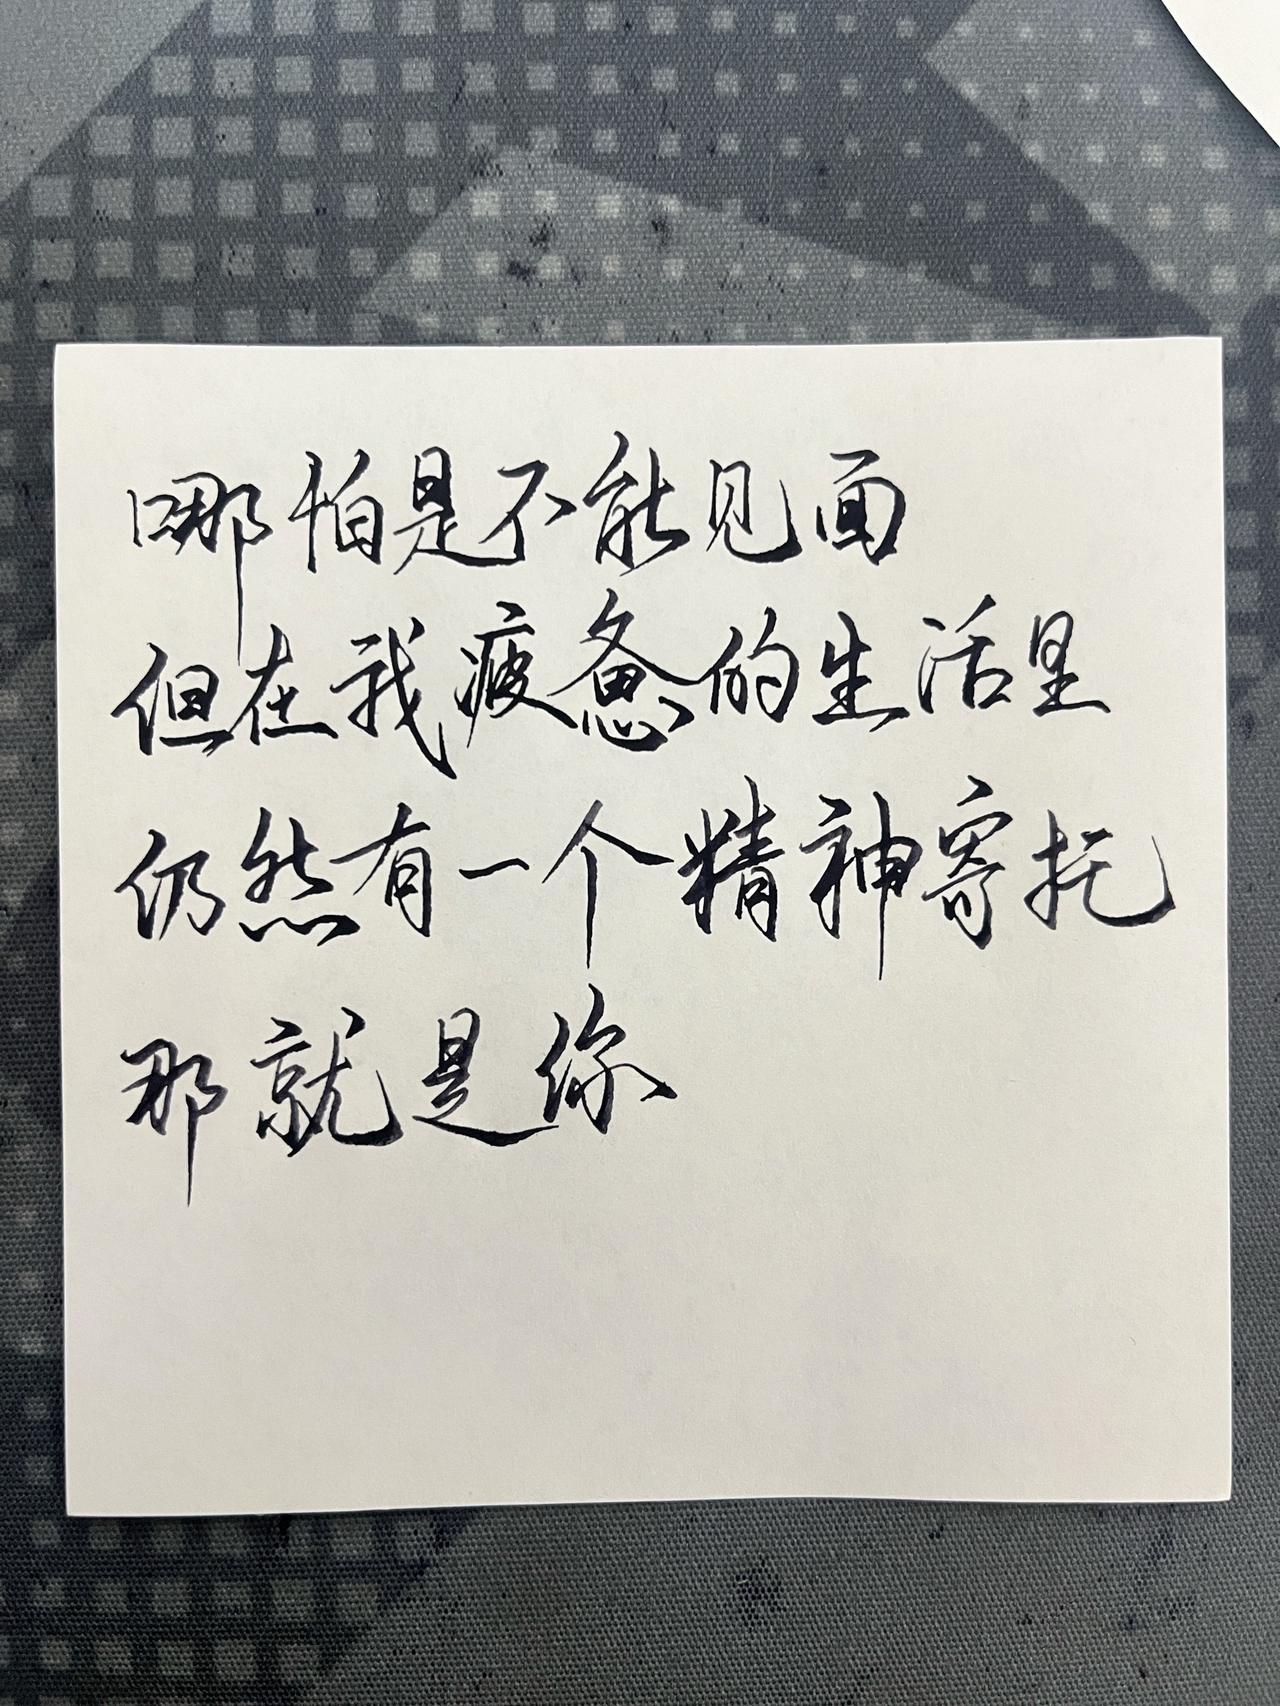 哪怕是不能见面
但在我疲惫的生活里
仍然有一个精神寄托
那就是你